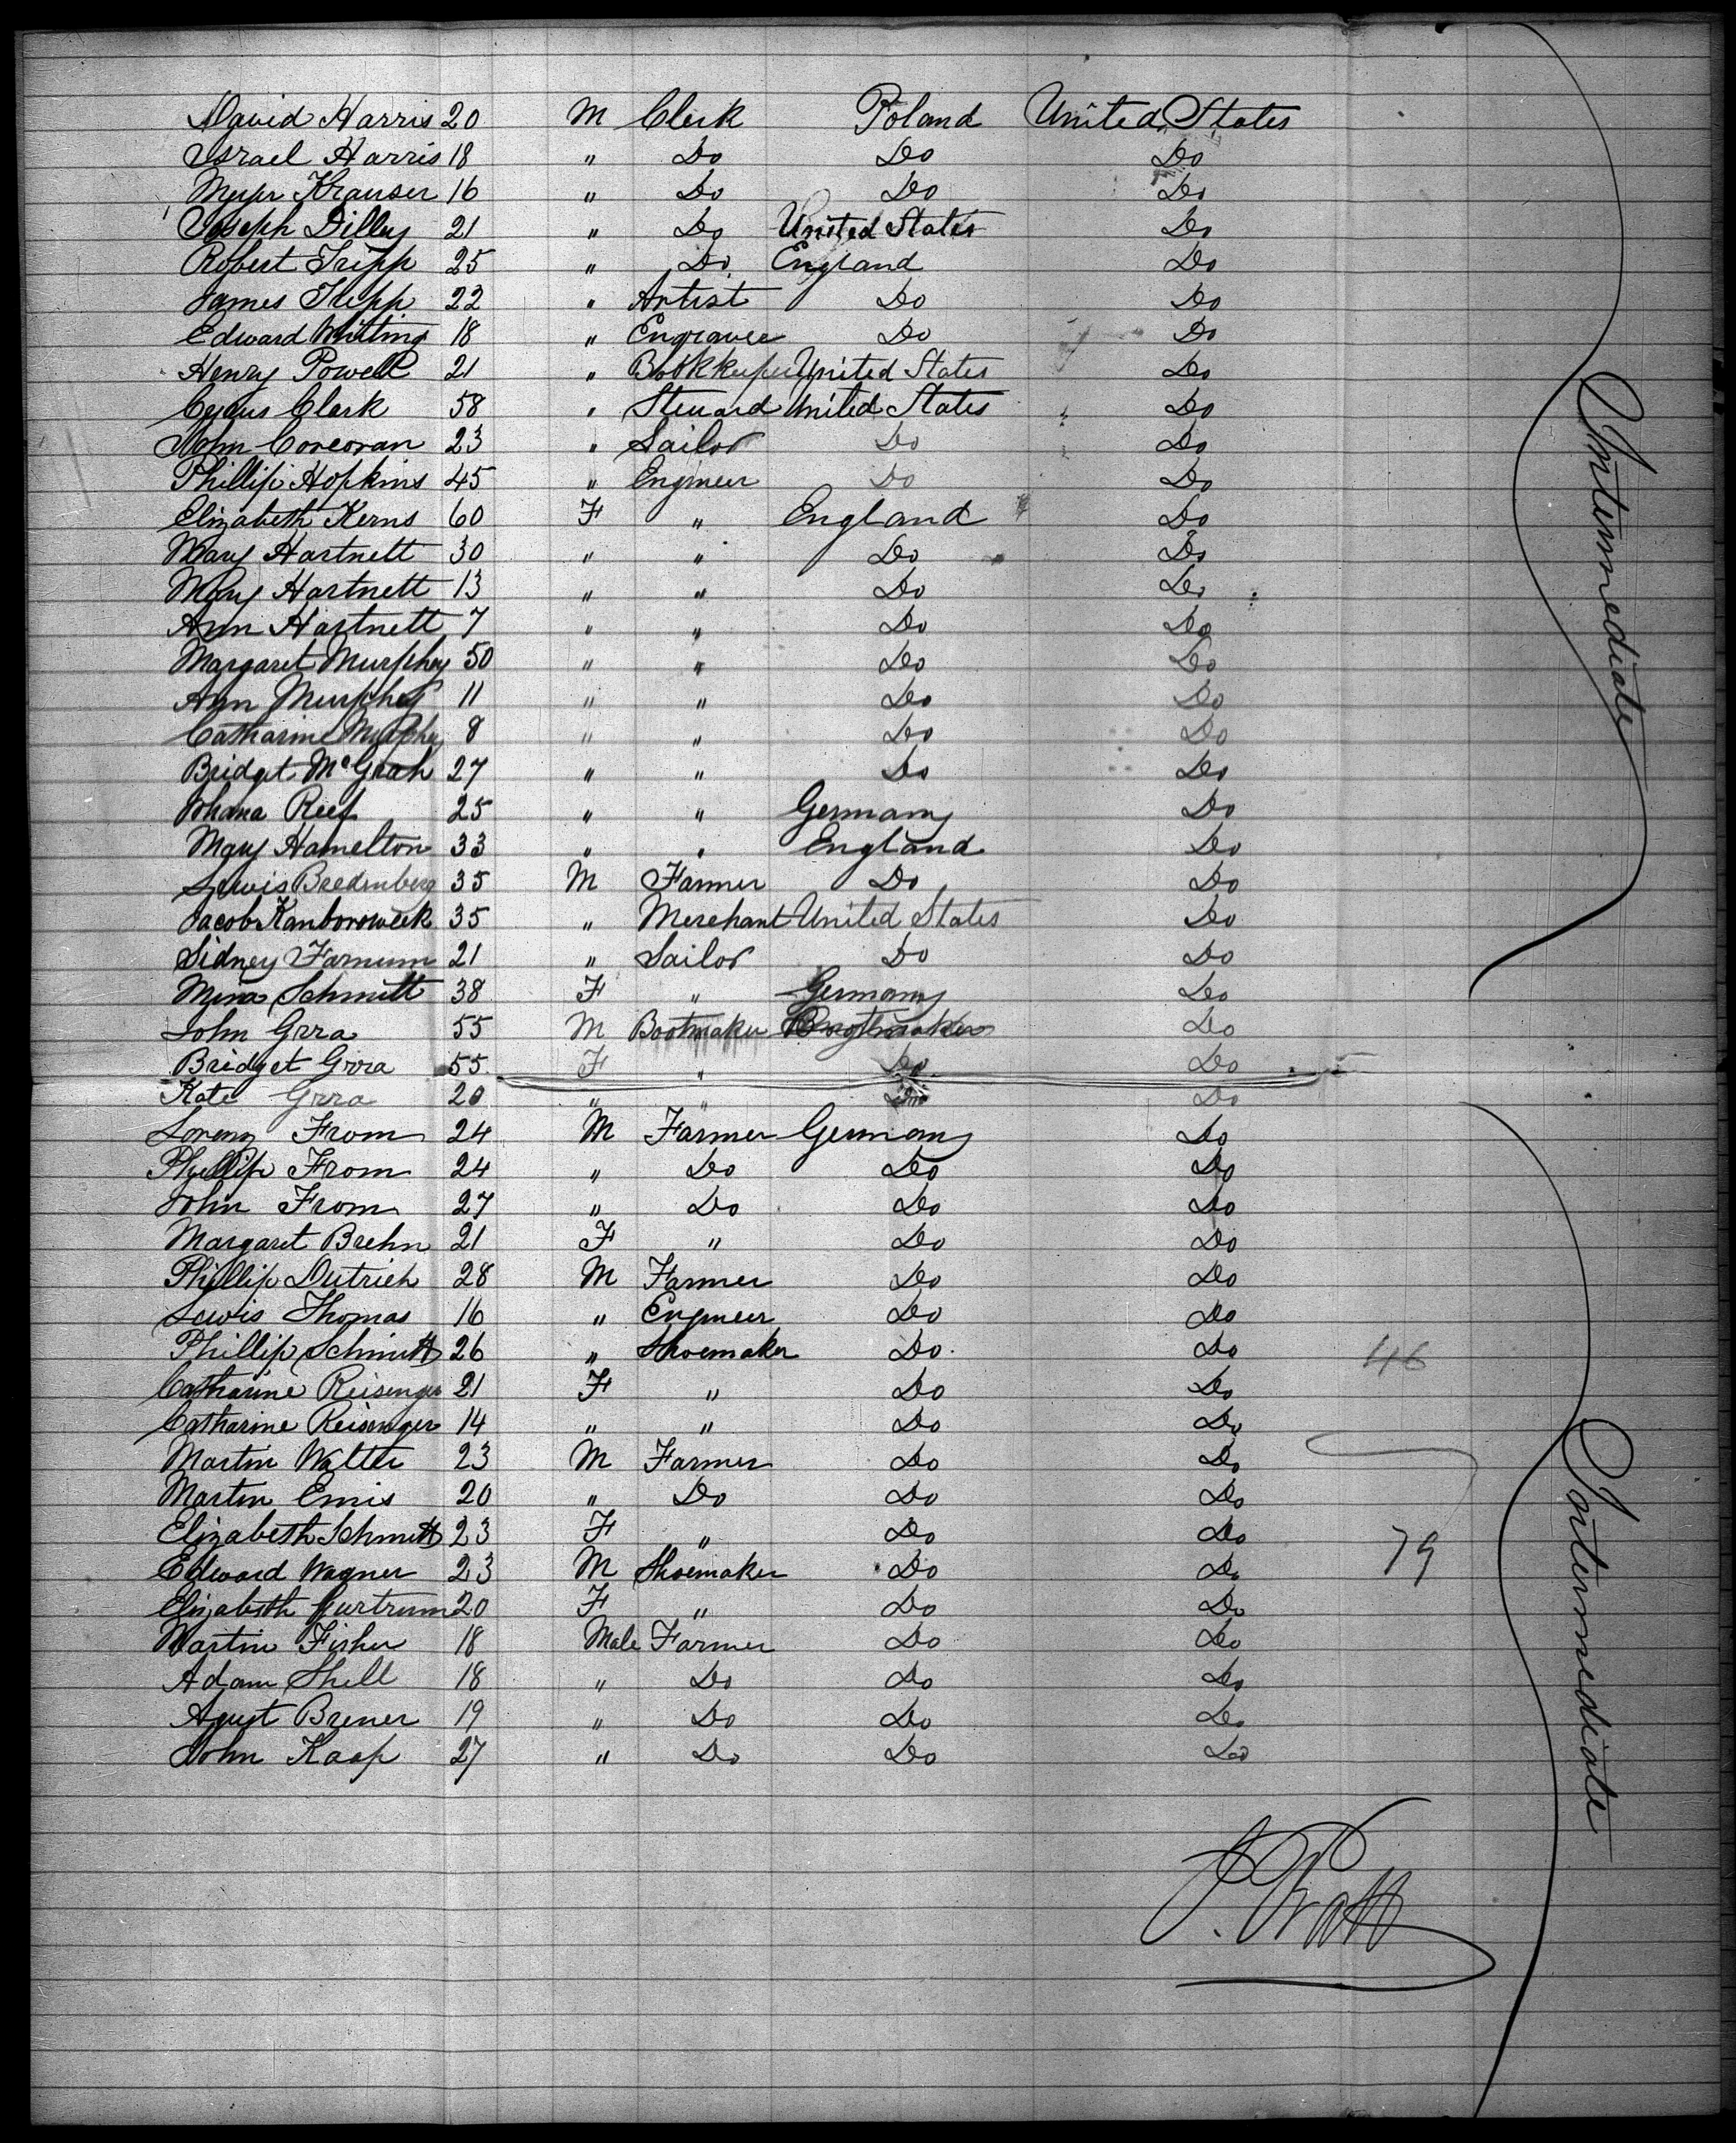 David Harris 20 M Clerk Poland United States
Israel Harris 18 " Do Do Do
Myer Krauser 16 " Do Do Do
Joseph Dilley 21 " Do United States Do
Robert Tripp 25 " Do England Do
James Tripp 22 " Artist Do Do
Edward Witting 18 " Engraver Do Do
Henry Powell 21 " Bookkeeper United States Do
Cyrus Clark 58 " Steward United States Do
John Corcoran 23 " Sailor Do Do
Phillip Hopkins 45 " Engineer Do Do
Elizabeth Kerns 60 F " England Do
Mary Hartnett 30 " " Do Do
Mary Hartnett 13 " " Do Do
Ann Hartnett 7 " " Do Do
Margaret Murphey 50 " " Do Do
Ann Murphey 11 " " Do Do
Catharine Murphey 8 " " Do Do
Bridget McGrah 27 " " Do Do
Johana Reef 25 " " Germany Do
Mary Hamelton 33 " " England Do
Lewis Bredenberg 35 M Farmer Do Do
Jacob Kanboroweek 35 " Merchant United States Do
Sidney Farnum 21 " Sailor Do Do
Mina Schmitt 38 F " Germany Do
John Grra 55 M Bootmaker Do
Bridget Grra 55 F " Do Do
Kate Grra 20 " " Do Do
Lorenz From 24 M Farmer Germany Do
Phillip From 24 " Do Do Do
John From 27 " Do Do Do
Margaret Brehn 21 F " Do Do
Phillip Dutrich 28 M Farmer Do Do
Lewis Thomas 16 " Engineer Do Do
Phillip Schmitt 26 " Shoemaker Do Do 46
Catharine Reisenger 21 F " Do Do
Catharine Reisenger 14 " " Do Do
Martin Walter 23 M Farmer Do Do
Martin Emis 20 " Do Do Do
Elizabeth Schmitt 23 F " Do Do
Edward Wagner 23 M Shoemaker Do Do 79
Elizabeth Gurtrum 20 F " Do Do
Martin Fisher 18 Male Farmer Do Do
Adam Shell 18 " Do Do Do
Agust Brener 19 " Do Do Do
John Kaap 27 " Do Do Do
Intermediate
Intermediate
J. Pratt